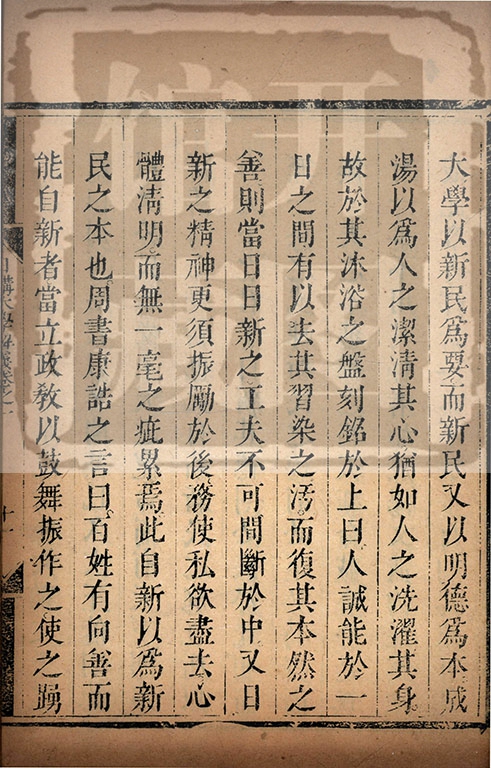 大學以新民爲要而新民又以明德爲本成
湯以爲人之潔清其心猶如人之洗濯其身
故於其沐浴之盤刻銘於上曰人誠能於一
日之間有以去其習染之汚而復其本然之
善則當日日新之工夫不可間斷於中又日
新之精神更須振勵於後務使私欲盡去心
體清明而無一毫之疵累焉此自新以爲新
民之本也周書康誥之言曰百姓有向善而
能自新者當立政教以鼓舞振作之使之踴
日講
十一